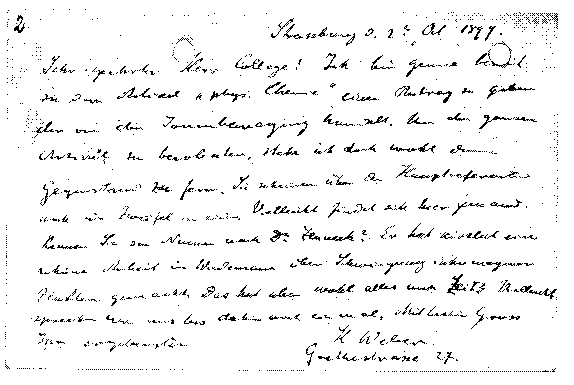 2
Strassburg d. 2ⁿ Okt 1897.
Sehr geehrter Herr College! Ich bin gerne bereit
zu dem Artikel "phys. Chemie" einen Beitrag zu geben
der von der Ionenbewegung handelt. Um den ganzen
Artikel zu bearbeiten, stehe ich doch wohl dem
Gegenstand zu fern. Sie scheinen über den Hauptreferenten
noch im Zweifel zu sein. Vielleicht findet sich hier jemand.
Kennen Sie den Namen nach Dr. Zenneck? Er hat kürzlich eine
schöne Arbeit in Wiedemann über Schwingungen
gemacht. Das hat aber wohl alles noch Zeit & Vielleicht
sprechen wir uns bis dahin noch einmal. Mit bestem Gruss
Ihr ergebenster
H Weber
Goethestrasse 27.